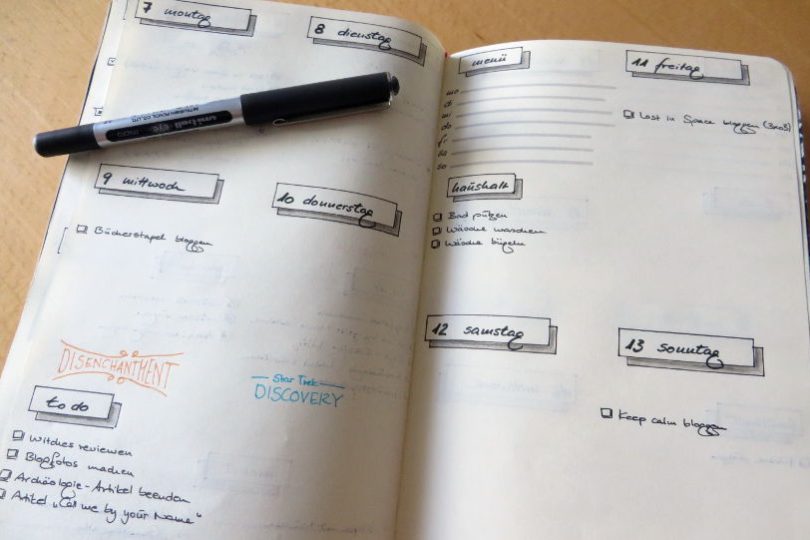 7 montag
8 dienstag
9 mittwoch
10 donnerstag
Bücherstapel bloggen
DISENCHANTMENT
Star Trek
DISCOVERY
to do
Witches reviewen
Blogfotos machen
Archäologie-Artikel beenden
Artikel „Call me by your Name“
menü
mo
di
mi
do
fr
sa
so
haushalt
Bad putzen
Wäsche waschen
Wäsche bügeln
11 freitag
Lost in Space bloggen
12 samstag
13 sonntag
Keep calm bloggen
uni-ball eye